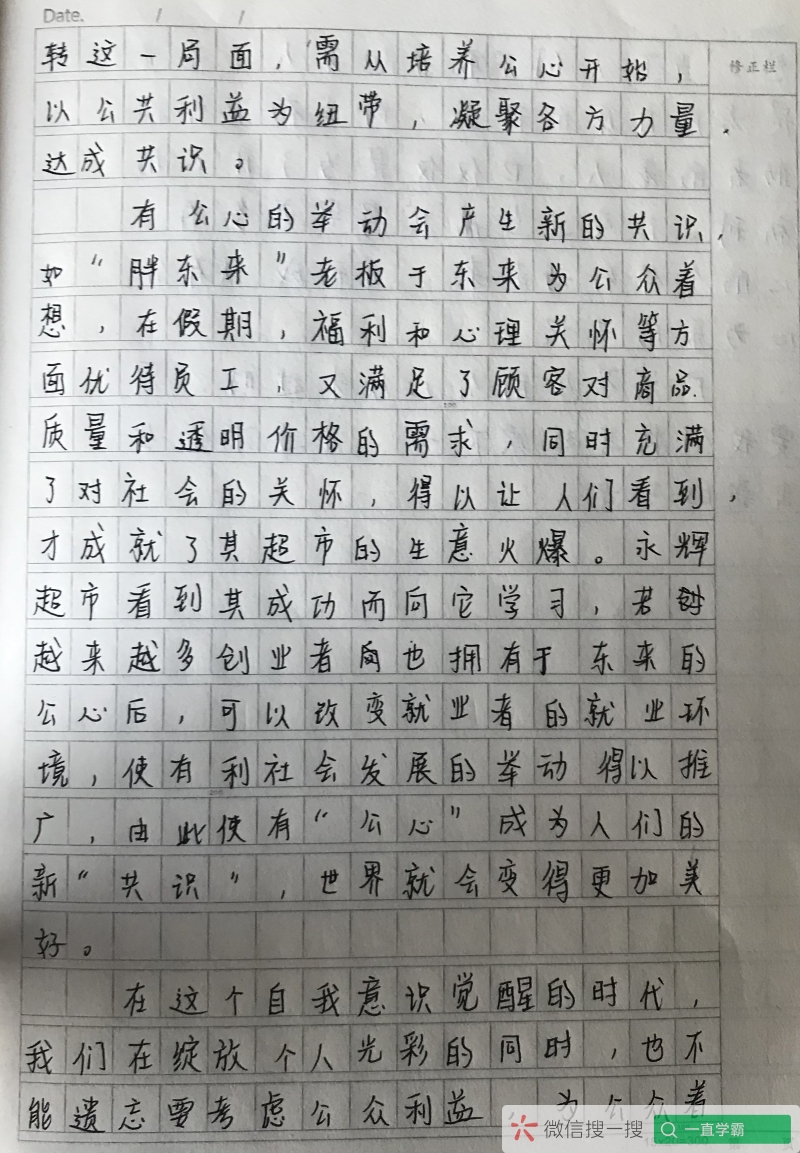 Date. / /
修正栏
转这一局面，需从培养公心开始，
以公共利益为纽带，凝聚各方力量，
达成共识。
有公心的举动会产生新的共识，
如“胖东来”老板于东来为公众着
想，在假期，福利和心理关怀等方
面优待员工，又满足了顾客对商品
质量和透明价格的需求，同时充满
了对社会的关怀，得以让人们看到，
才成就了其超市的生意火爆。永辉
超市看到其成功而向它学习，若
越来越多创业者也拥有于东来的
公心后，可以改变就业者的就业环
境，使有利社会发展的举动得以推
广，由此使有“公心”成为人们的
新“共识”，世界就会变得更加美
好。
在这个自我意识觉醒的时代，
我们在绽放个人光彩的同时，也不
能遗忘要考虑公众利益，为公众着
微信搜一搜
一直学霸